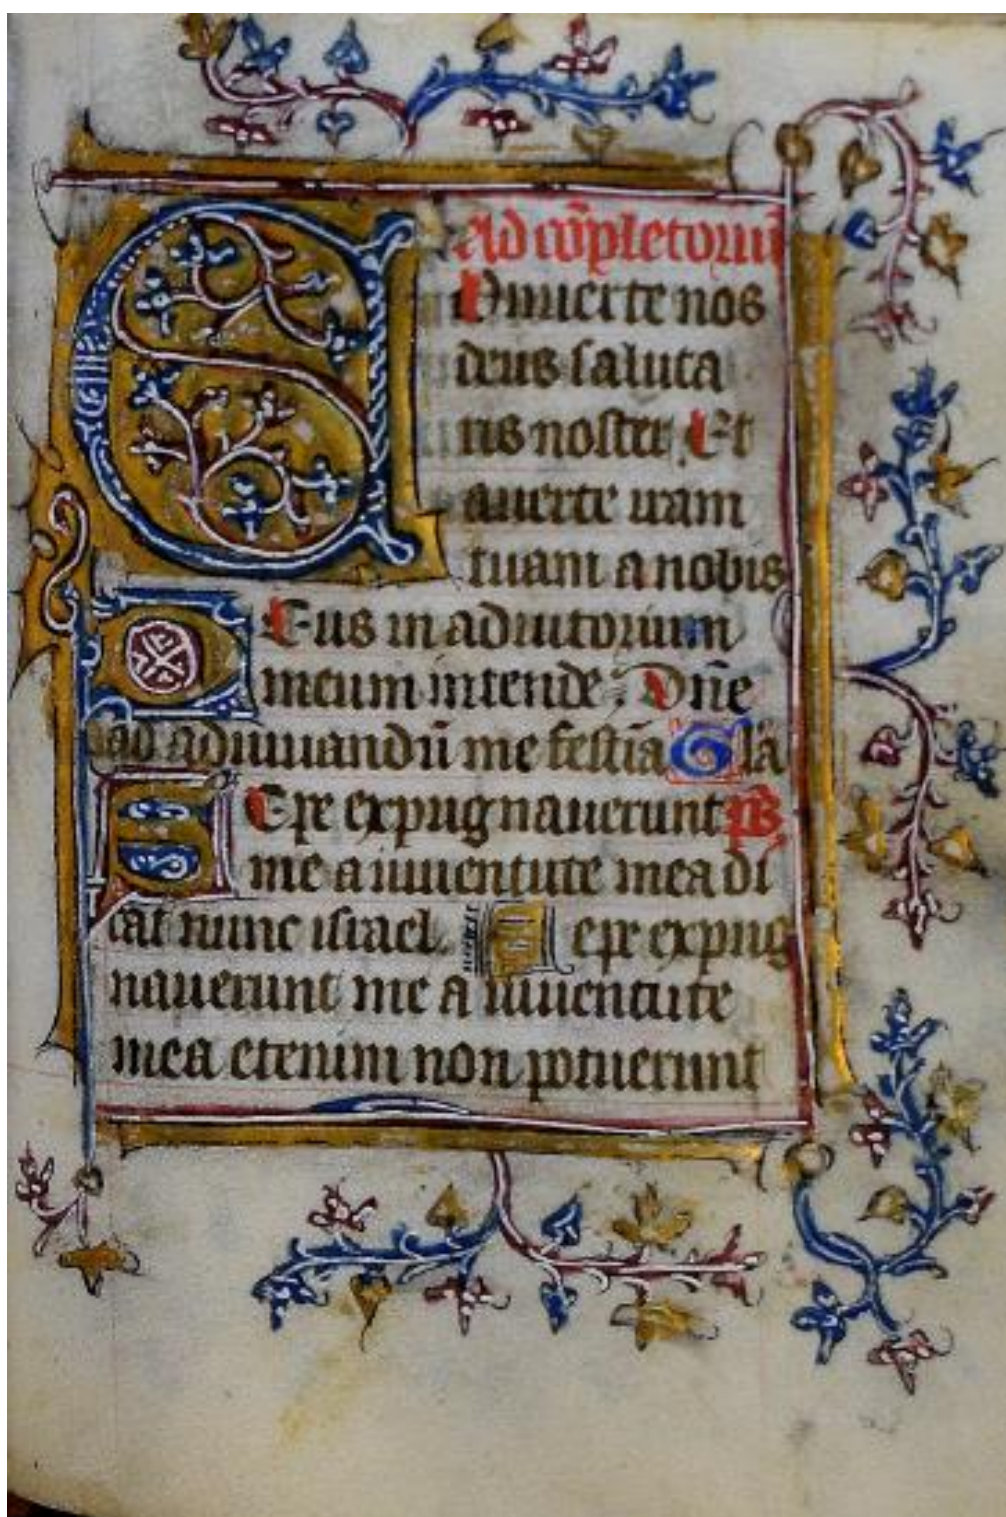 Ad cōpletoriū
Onuerte nos
deus saluta
ris noster Et
auerte iram
tuam a nobis
Eus in adiutorium
meum intende Dñe
ad adiuuandū me festīa Glā
Epe expugnauerunt ps̄
me a iuuentute mea di
cat nunc israel Sepe expug
nauerunt me a iuuentute
mea etenim non potuerunt